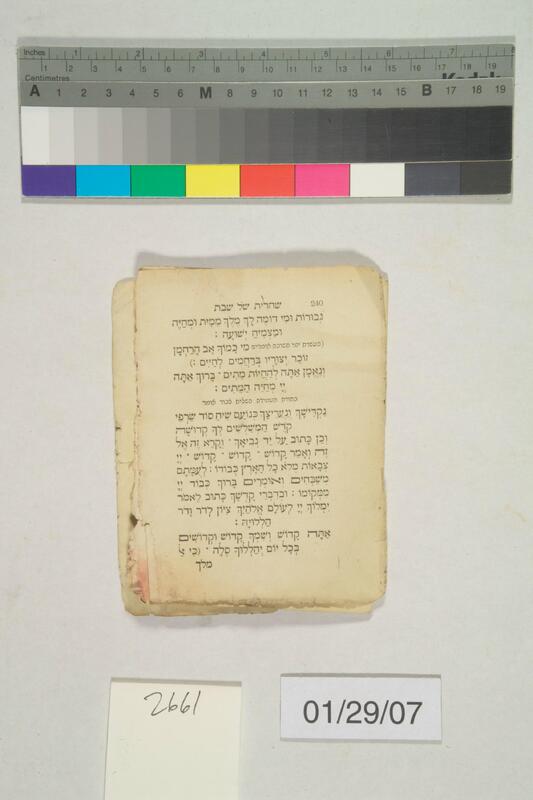 Inches 1 2 3 4 5 6 7
1 2 3 4 5 6 7 8 9 10 11 12 13 14 15 16 17 18 19
Centimetres
A 1 2 3 4 5 6 M 8 9 10 11 12 13 14 15 B 17 18 19
240 שחרית של שבת
גְבוּרוֹת וּמִי דוֹמֶה לָּךְ מֶלֶךְ מֵמִית וּמְחַיֶּה
וּמַצְמִיחַ יְשׁוּעָה :
מִי כָמוֹךָ אַב הָרַחֲמָן
זוֹכֵר יְצוּרָיו בְּרַחֲמִים לְחַיִּים :)
וְנֶאֱמָן אַתָּה לְהַחֲיוֹת מֵתִים · בָּרוּךְ אַתָּה
יְיָ מְחַיֵּה הַמֵּתִים :
נַקְדִּישָׁךְ וְנַעֲרִיצָךְ כְּנוֹעַם שִׂיחַ סוֹד שַׂרְפֵי
קֹדֶשׁ הַמְשַׁלְּשִׁים לְךָ קְדוּשָּׁה
וְכֵן כָּתוּב עַל יַד נְבִיאָךְ · וְקָרָא זֶה אֶל
זֶה וְאָמַר קָדוֹשׁ · קָדוֹשׁ · קָדוֹשׁ · יְיָ
צְבָאוֹת מְלֹא כָל הָאָרֶץ כְּבוֹדוֹ : לְעֻמָּתָם
מְשַׁבְּחִים וְאוֹמְרִים בָּרוּךְ כְּבוֹד יְיָ
מִמְּקוֹמוֹ : וּבְדִבְרֵי קָדְשָׁךְ כָּתוּב לֵאמֹר
יִמְלוֹךְ יְיָ לְעוֹלָם אֱלֹהַיִךְ צִיּוֹן לְדֹר וָדֹר
הַלְלוּיָהּ :
אַתָּה קָדוֹשׁ וְשִׁמְךָ קָדוֹשׁ וּקְדוֹשִׁים
בְּכָל יוֹם יְהַלְלוּךָ סֶּלָה · (כִּי אֵ
מלך
2661
01/29/07